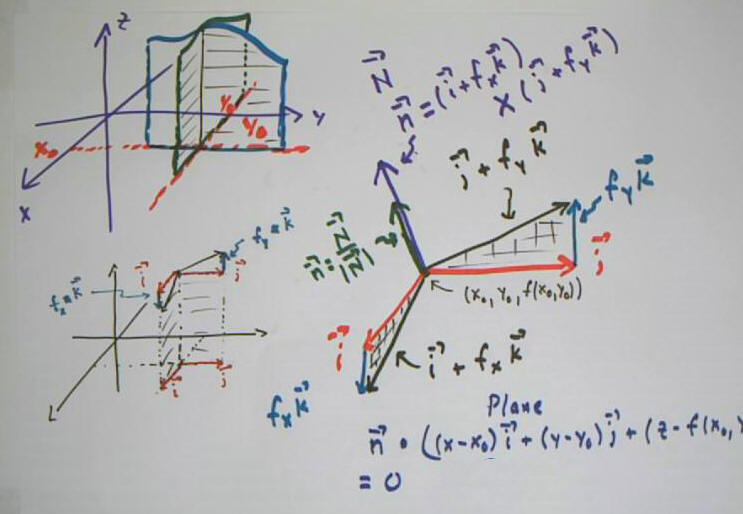 z
y
x
x₀
y₀
y₀
N⃗
n⃗ = (i⃗ + fₓk⃗)
× (j⃗ + f_y k⃗)
j⃗ + f_y k⃗
f_y k⃗
j⃗
n⃗ = N⃗/|N⃗|
(x₀, y₀, f(x₀,y₀))
i⃗
i⃗ + fₓ k⃗
fₓk⃗
f_y k⃗
fₓ k⃗
i⃗
i⃗
j⃗
Plane
n⃗ • ((x-x₀)i⃗ + (y-y₀)j⃗ + (z - f(x₀, y
= 0